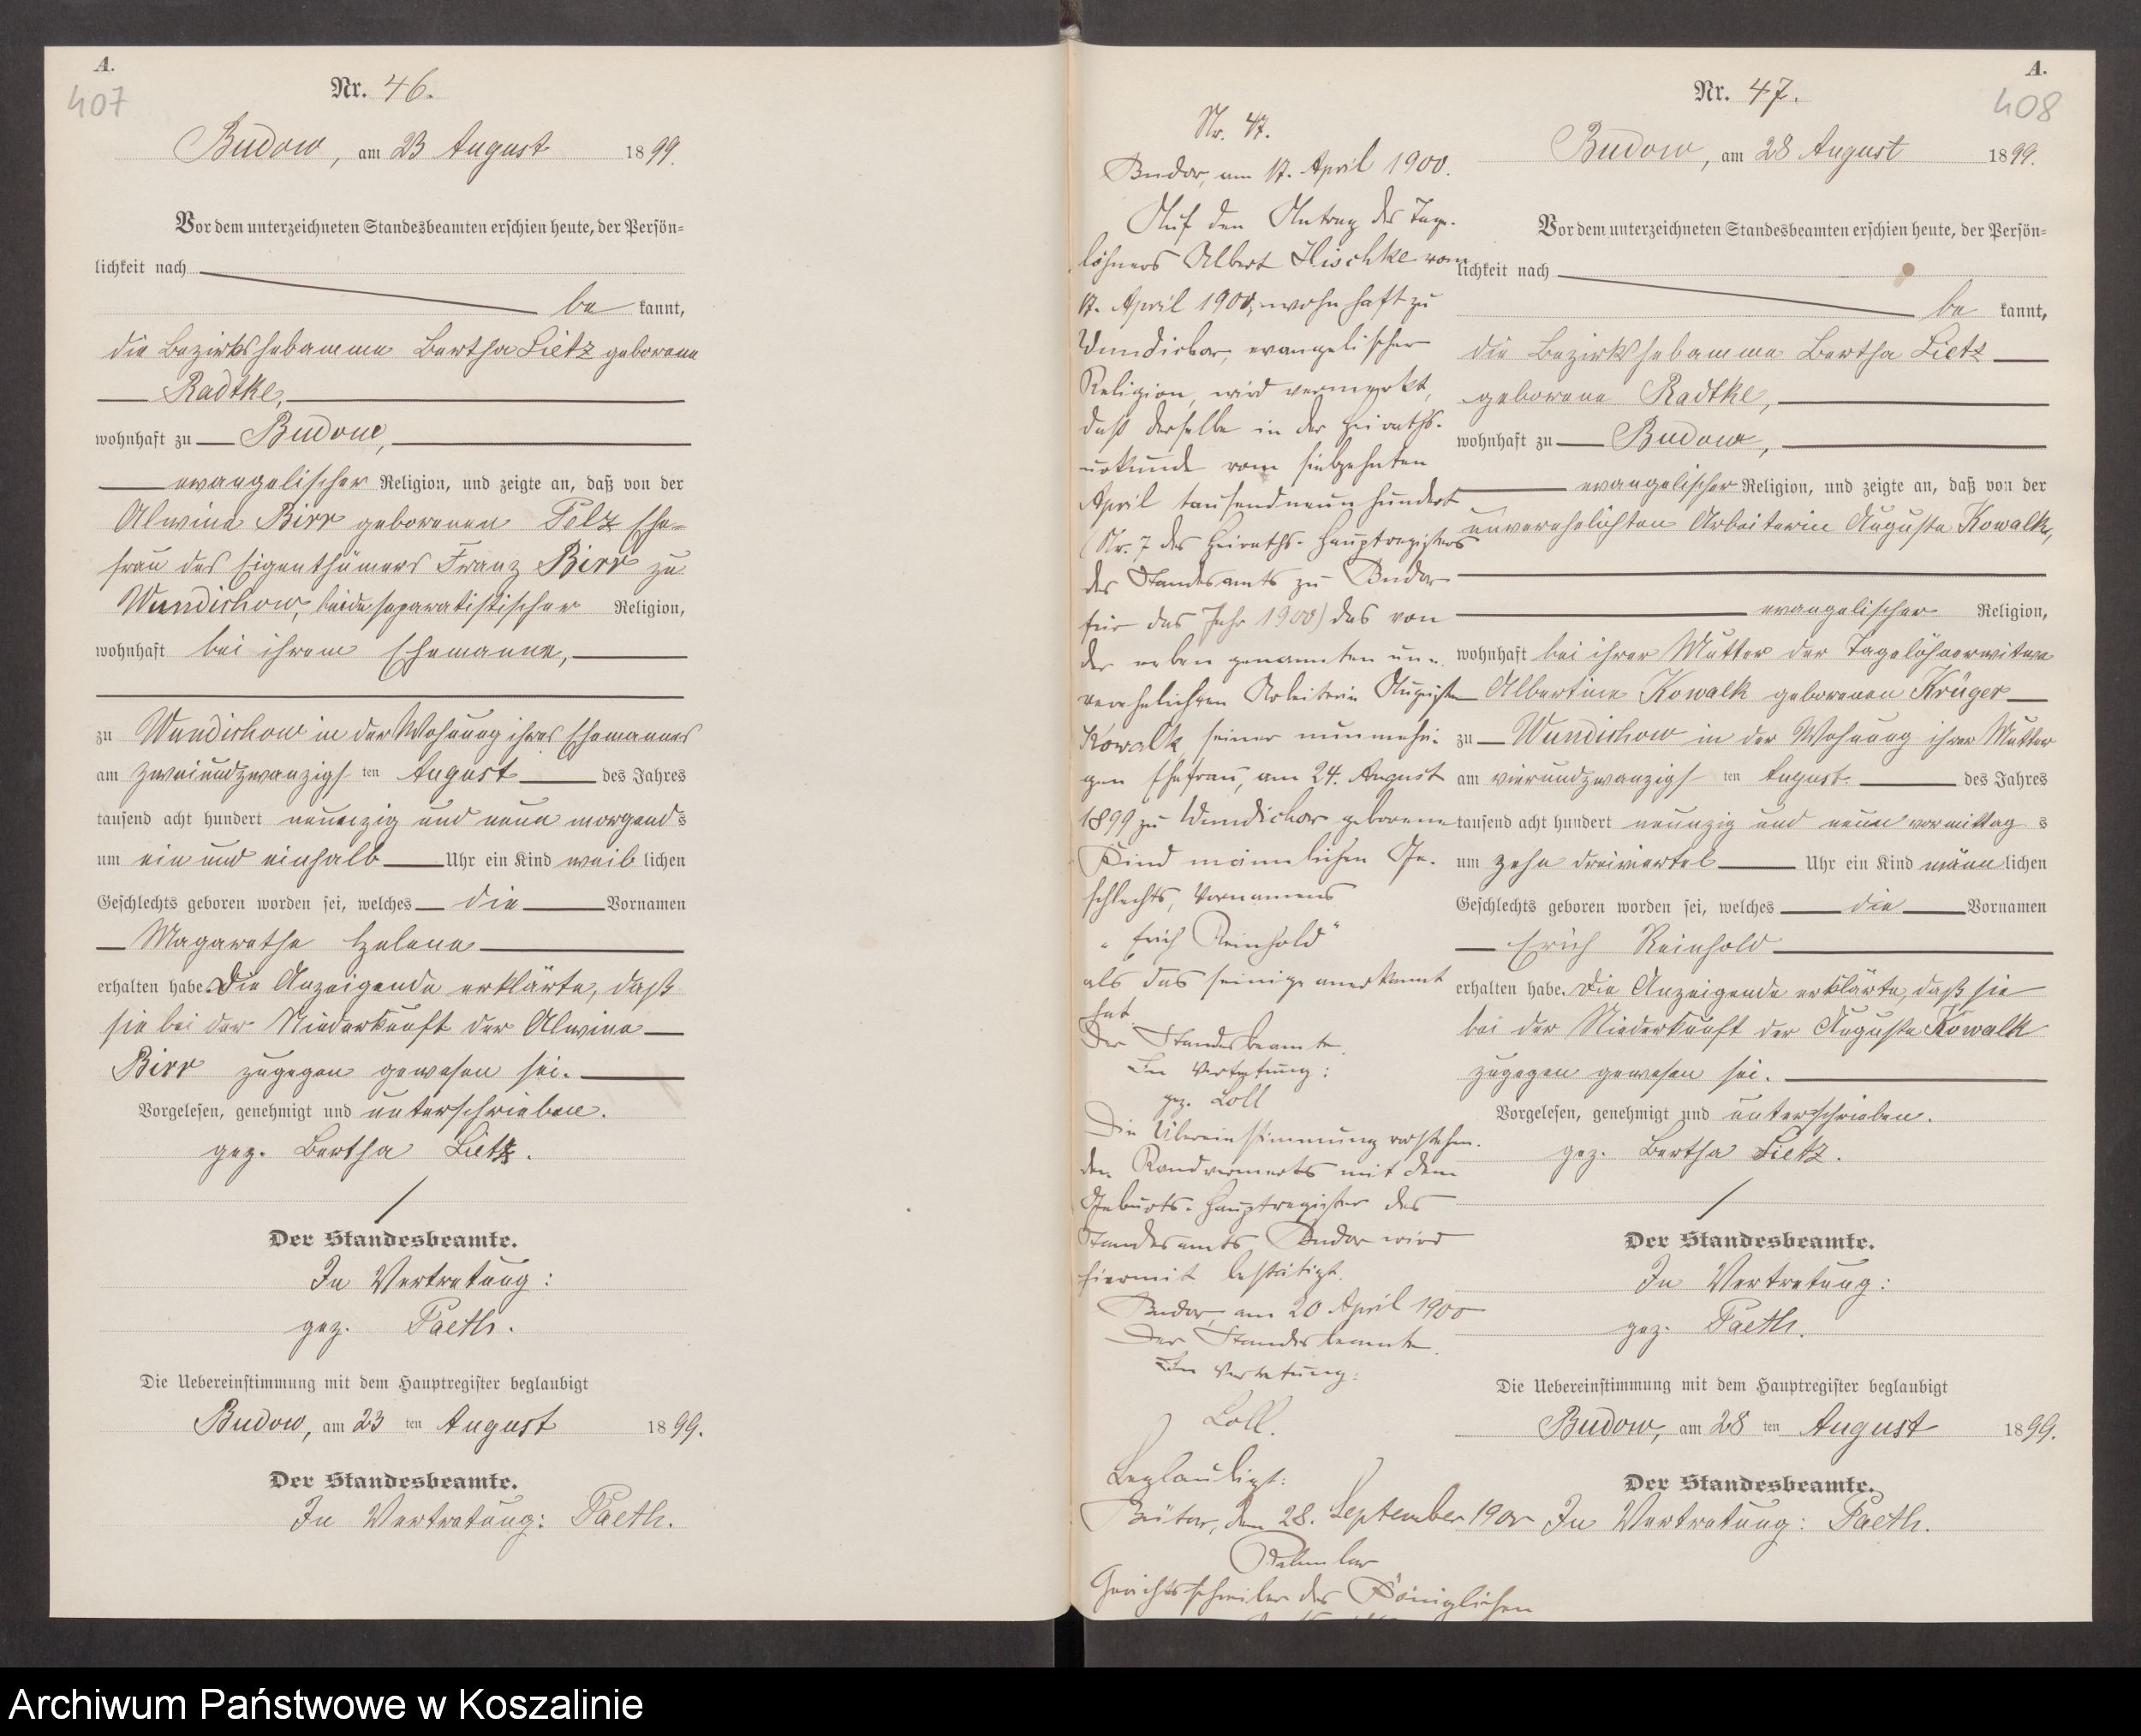 A.
407
Nr. 46.
Budow, am 23 August 1899.
Vor dem unterzeichneten Standesbeamten erschien heute, der Persön-
lichkeit nach
be kannt,
die Bezirkshebamme Bertha Lietz geborene
Radtke,
wohnhaft zu Budow,
evangelischer Religion, und zeigte an, daß von der
Alwine Birr geborenen Pelz Ehe-
frau des Eigenthümers Franz Birr zu
Wundichow, beide separatistischer Religion,
wohnhaft bei ihrem Ehemanne,
zu Wundichow in der Wohnung ihres Ehemannes
am zweiundzwanzigsten August des Jahres
tausend acht hundert neunzig und neun morgends
um ein und einhalb Uhr ein Kind weiblichen
Geschlechts geboren worden sei, welches die Vornamen
Magarethe Helene
erhalten habe. Die Anzeigende erklärte, daß
sie bei der Niederkunft der Alwine
Birr zugegen gewesen sei.
Vorgelesen, genehmigt und unterschrieben.
gez. Bertha Lietz.
Der Standesbeamte.
In Vertretung:
gez. Paeth.
Die Uebereinstimmung mit dem Hauptregister beglaubigt
Budow, am 23 ten August 1899.
Der Standesbeamte.
In Vertretung: Paeth.
Nr. 47.
Budow, am 17. April 1900.
Auf den Antrag des Tage-
löhners Albert Hischke vom
17. April 1900, wohnhaft zu
Wundichow, evangelischer
Religion, wird vermerkt,
daß derselbe in der Heiraths-
urkunde vom siebzehnten
April tausendneunhundert
(Nr. 7 des Heiraths-Hauptregisters
des Standesamts zu Budow
für das Jahr 1900) das von
der neben genannten un-
verehelichten Arbeiterin Auguste
Kowalk, seiner nunmehri-
gen Ehefrau, am 24. August
1899 zu Wundichow geborene
Kind männlichen Ge-
schlechts, Vornamens
"Erich Reinhold"
als das seinige anerkannt
hat.
Der Standesbeamte.
In Vertretung:
gez. Loll
Die Übereinstimmung vorstehen-
den Randvermerks mit dem
Geburts-Hauptregister des
Standesamts Budow wird
hiermit bestätigt.
Budow, am 20 April 1900
Der Standesbeamte.
In Vertretung:
Loll.
Beglaubigt:
Bütow, den 28. September 190
Gerichtsschreiber des Königlichen
A.
408
Nr. 47.
Budow, am 28 August 1899.
Vor dem unterzeichneten Standesbeamten erschien heute, der Persön-
lichkeit nach
be kannt,
die Bezirkshebamme Bertha Lietz
geborene Radtke,
wohnhaft zu Budow,
evangelischer Religion, und zeigte an, daß von der
unverehelichten Arbeiterin Auguste Kowalk,
evangelischer Religion,
wohnhaft bei ihrer Mutter der Tagelöhnerwitwe
Albertine Kowalk geborenen Krüger
zu Wundichow in der Wohnung ihrer Mutter
am vierundzwanzigsten August des Jahres
tausend acht hundert neunzig und neun vormittags
um zehn dreiviertel Uhr ein Kind männlichen
Geschlechts geboren worden sei, welches die Vornamen
Erich Reinhold
erhalten habe. Die Anzeigende erklärte, daß sie
bei der Niederkunft der Auguste Kowalk
zugegen gewesen sei.
Vorgelesen, genehmigt und unterschrieben.
gez. Bertha Lietz.
Der Standesbeamte.
In Vertretung:
gez. Paeth.
Die Uebereinstimmung mit dem Hauptregister beglaubigt
Budow, am 28 ten August 1899.
Der Standesbeamte.
In Vertretung: Paeth.
Archiwum Państwowe w Koszalinie